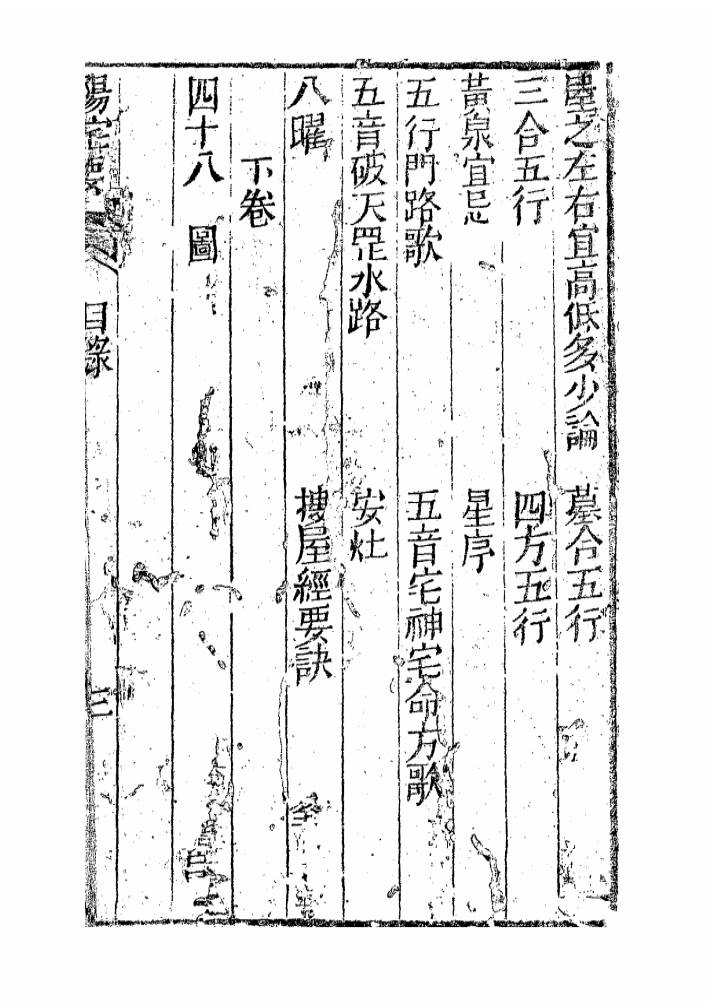 屋之左右宜高低多少論　墓合五行
三合五行　四方五行
黃泉宜忌　星序
五行門路歌　五音宅神宅命方歌
五音破天罡水路　安灶
八曜　搜屋經要訣
下卷
四十八圖
陽宅 目錄 三